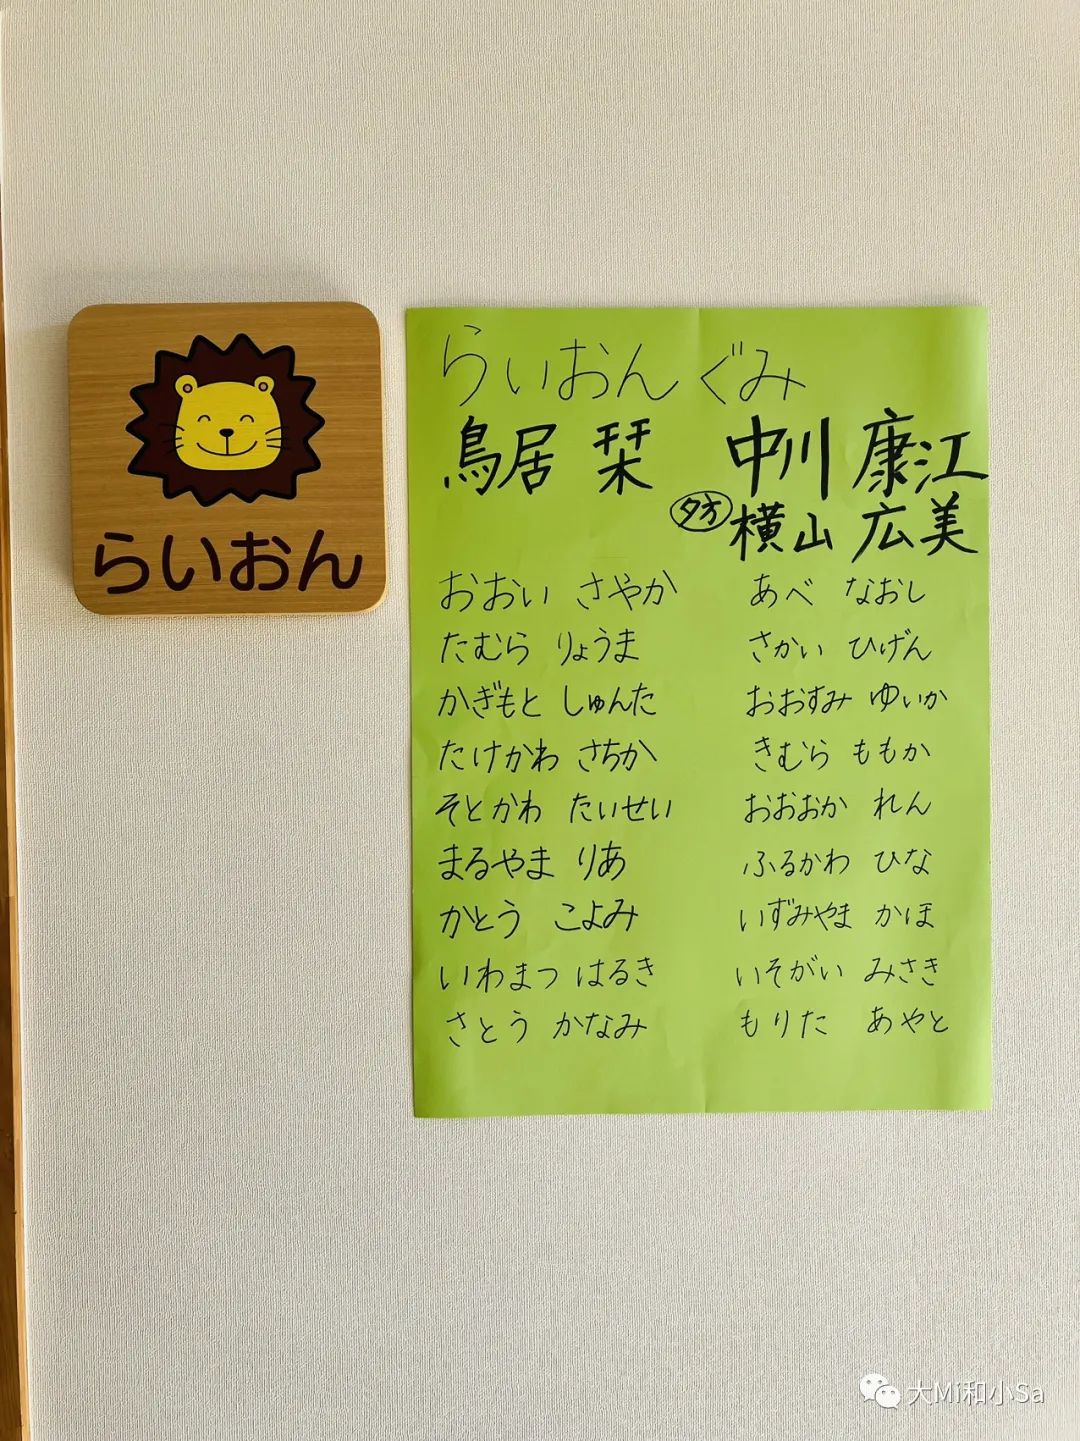 らいおん
らいおんぐみ
鳥居 栞 中川 康江
夕方 横山 広美
おおい さやか あべ なおし
たむら りょうま さかい ひげん
かぎもと しゅんた おおすみ ゆいか
たけかわ さちか きむら ももか
そとかわ たいせい おおおか れん
まるやま りあ ふるかわ ひな
かとう こよみ いずみやま かほ
いわまつ はるき いそがい みさき
さとう かなみ もりた あやと
大Mi和小Sa